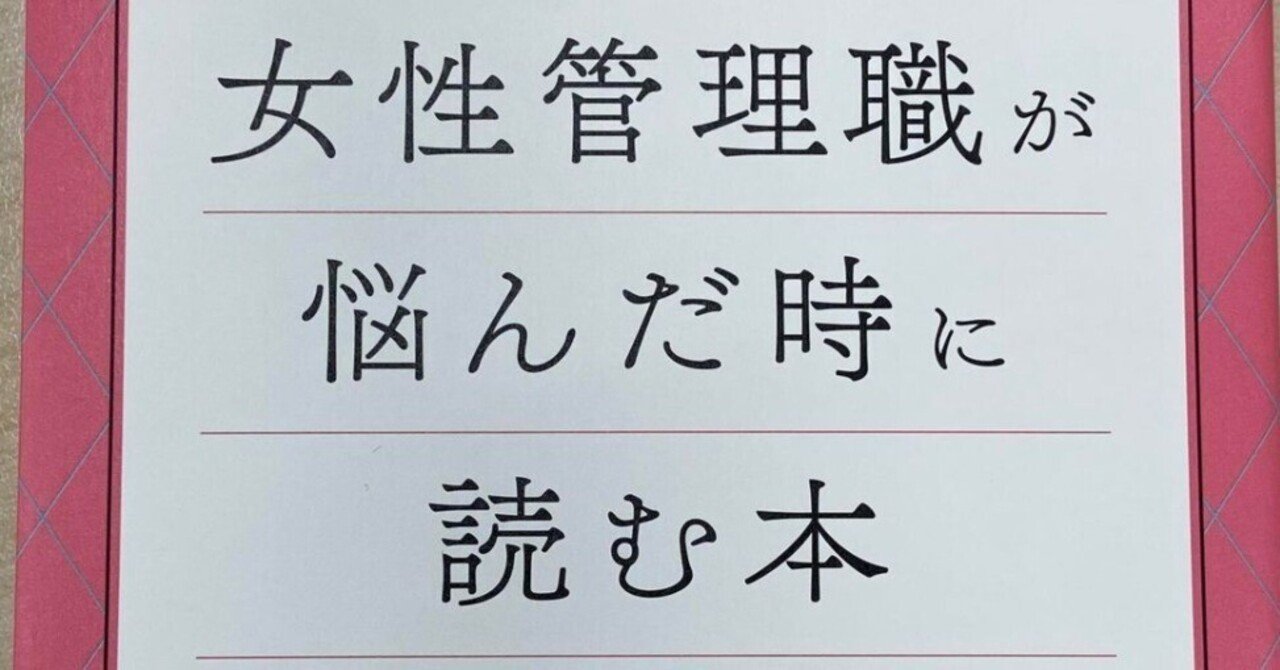 女性管理職が
悩んだ時に
読む本